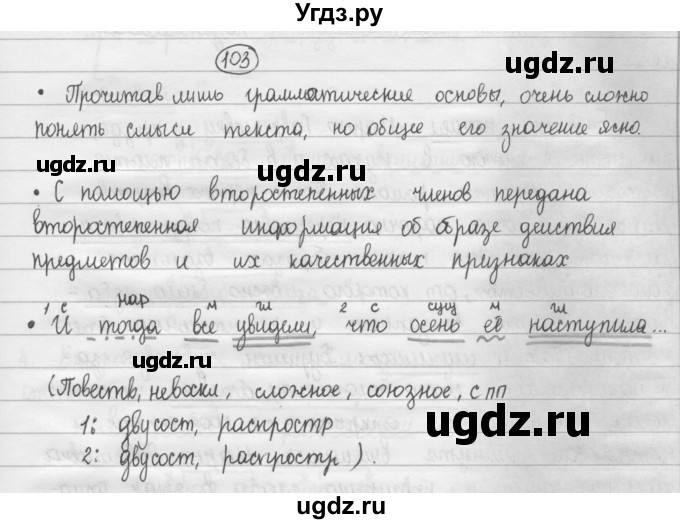 Угдз.ру
103
• Прочитав лишь грамматические основы, очень сложно
понять смысл текста, но общее его значение ясно.
• С помощью второстепенных членов передана
второстепенная информация об образе действия
предметов и их качественных признаках
1 с нар м гл 2 с сущ м гл
• И тогда все увидели, что осень её наступила...
(Повеств, невоскл, сложное, союзное, спп
1: двусост, распростр
2: двусост, распростр).
ugdz.ru
ugdz.ru
ugdz.ru
ugdz.ru
ugdz.ru
ugdz.ru
ugdz.ru
ugdz.ru
ugdz.ru
ugdz.ru
ugdz.ru